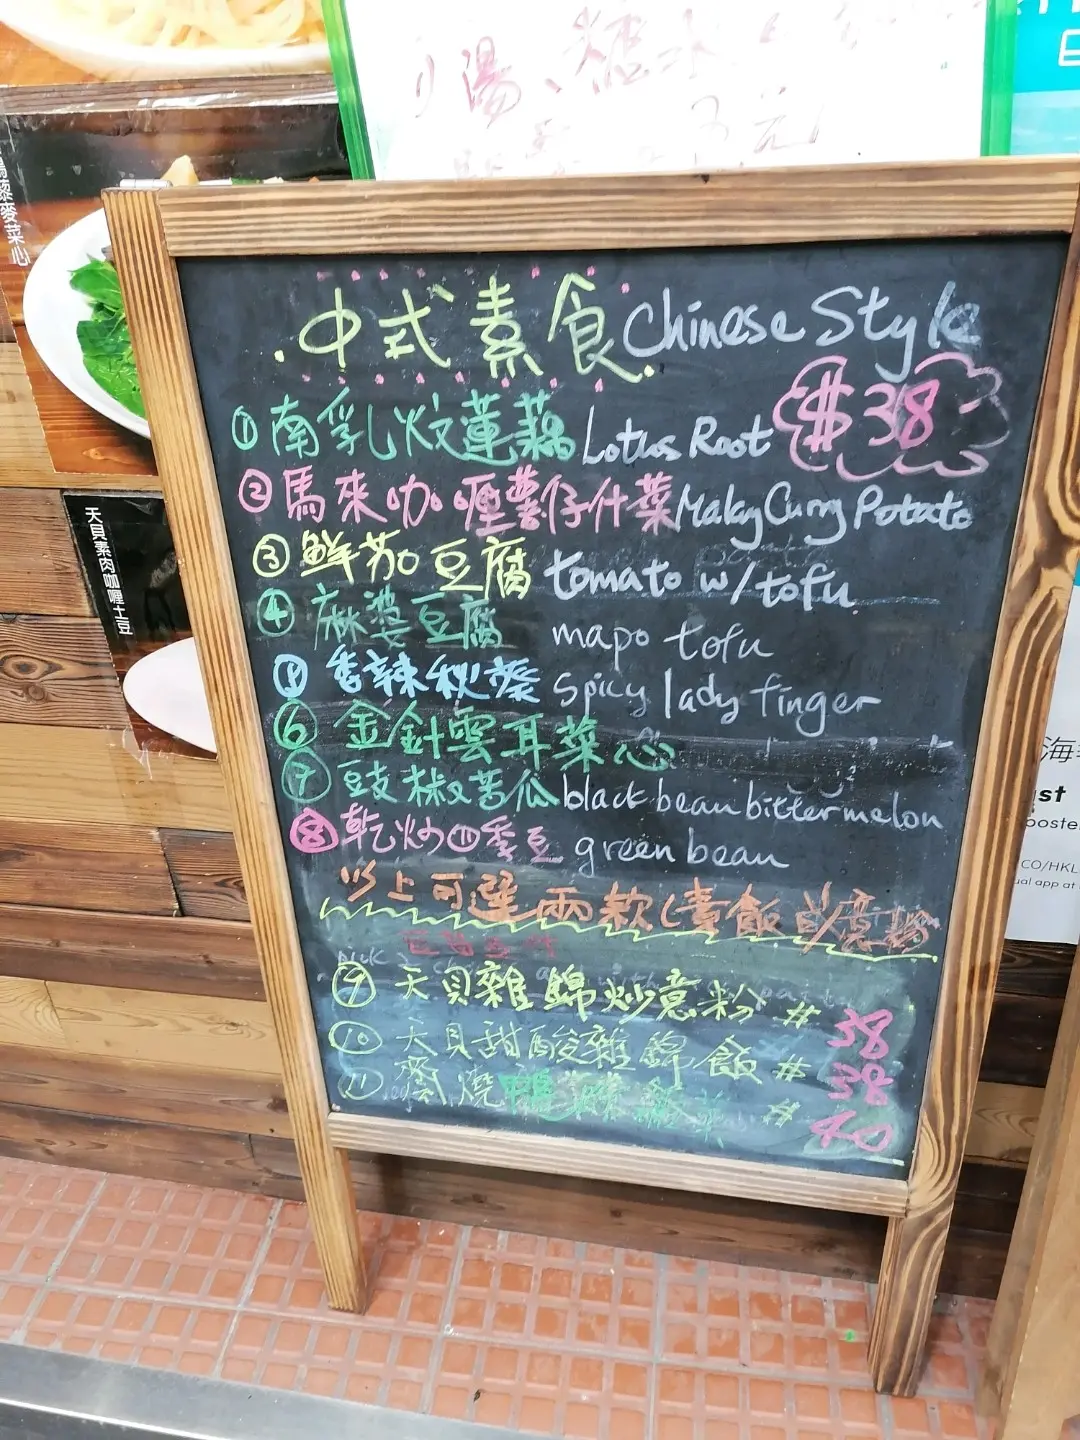 湯、糖水
3元
藜麥菜心
天貝素肉咖喱土豆
中式素食 Chinese Style
$38
① 南乳炆蓮藕 Lotus Root
② 馬來咖喱薯仔什菜 Malay Curry Potato
③ 鮮茄豆腐 tomato w/tofu
④ 麻婆豆腐 mapo tofu
香辣秋葵 Spicy lady finger
⑥ 金針雲耳菜心
⑦ 豆豉椒苦瓜 black bean bittermelon
⑧ 乾炒四季豆 green bean
以上可選兩款(素飯
⑨ 天貝雜錦炒意粉 # 38
⑩ 天貝甜酸雜錦飯 # 38
⑪ 齋燒鴨 # 40
海